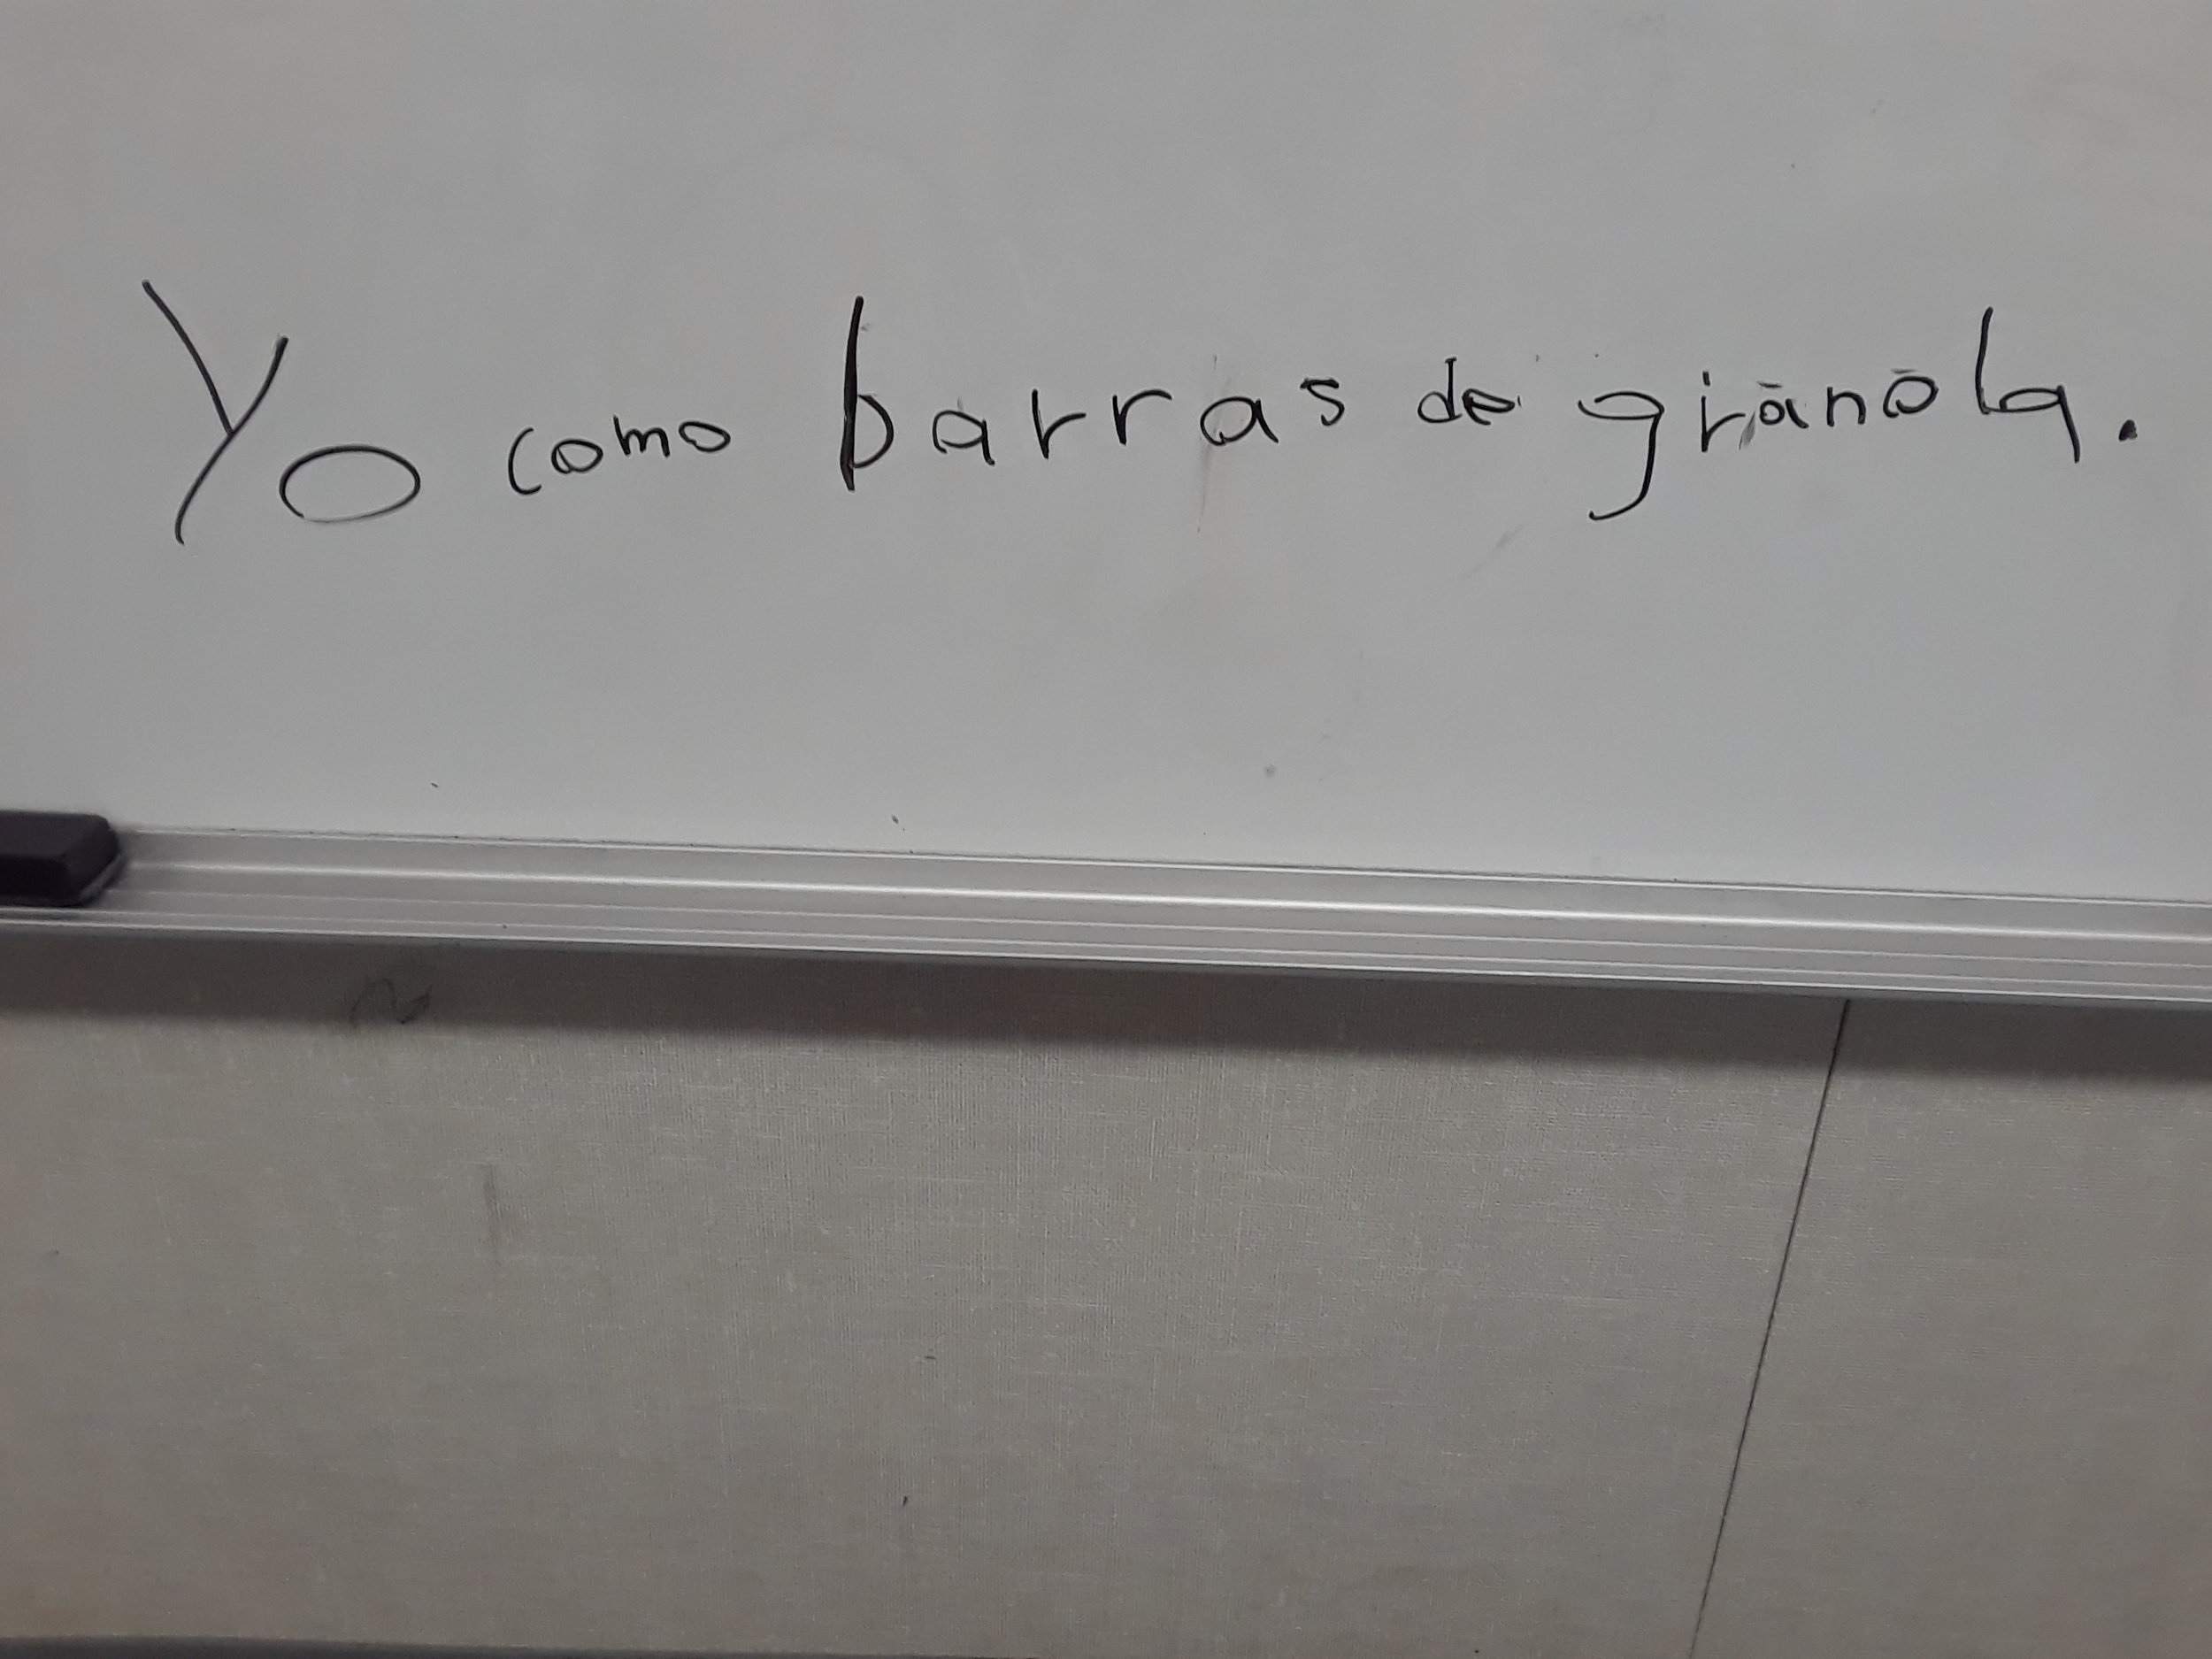 Yo como barras de granola.